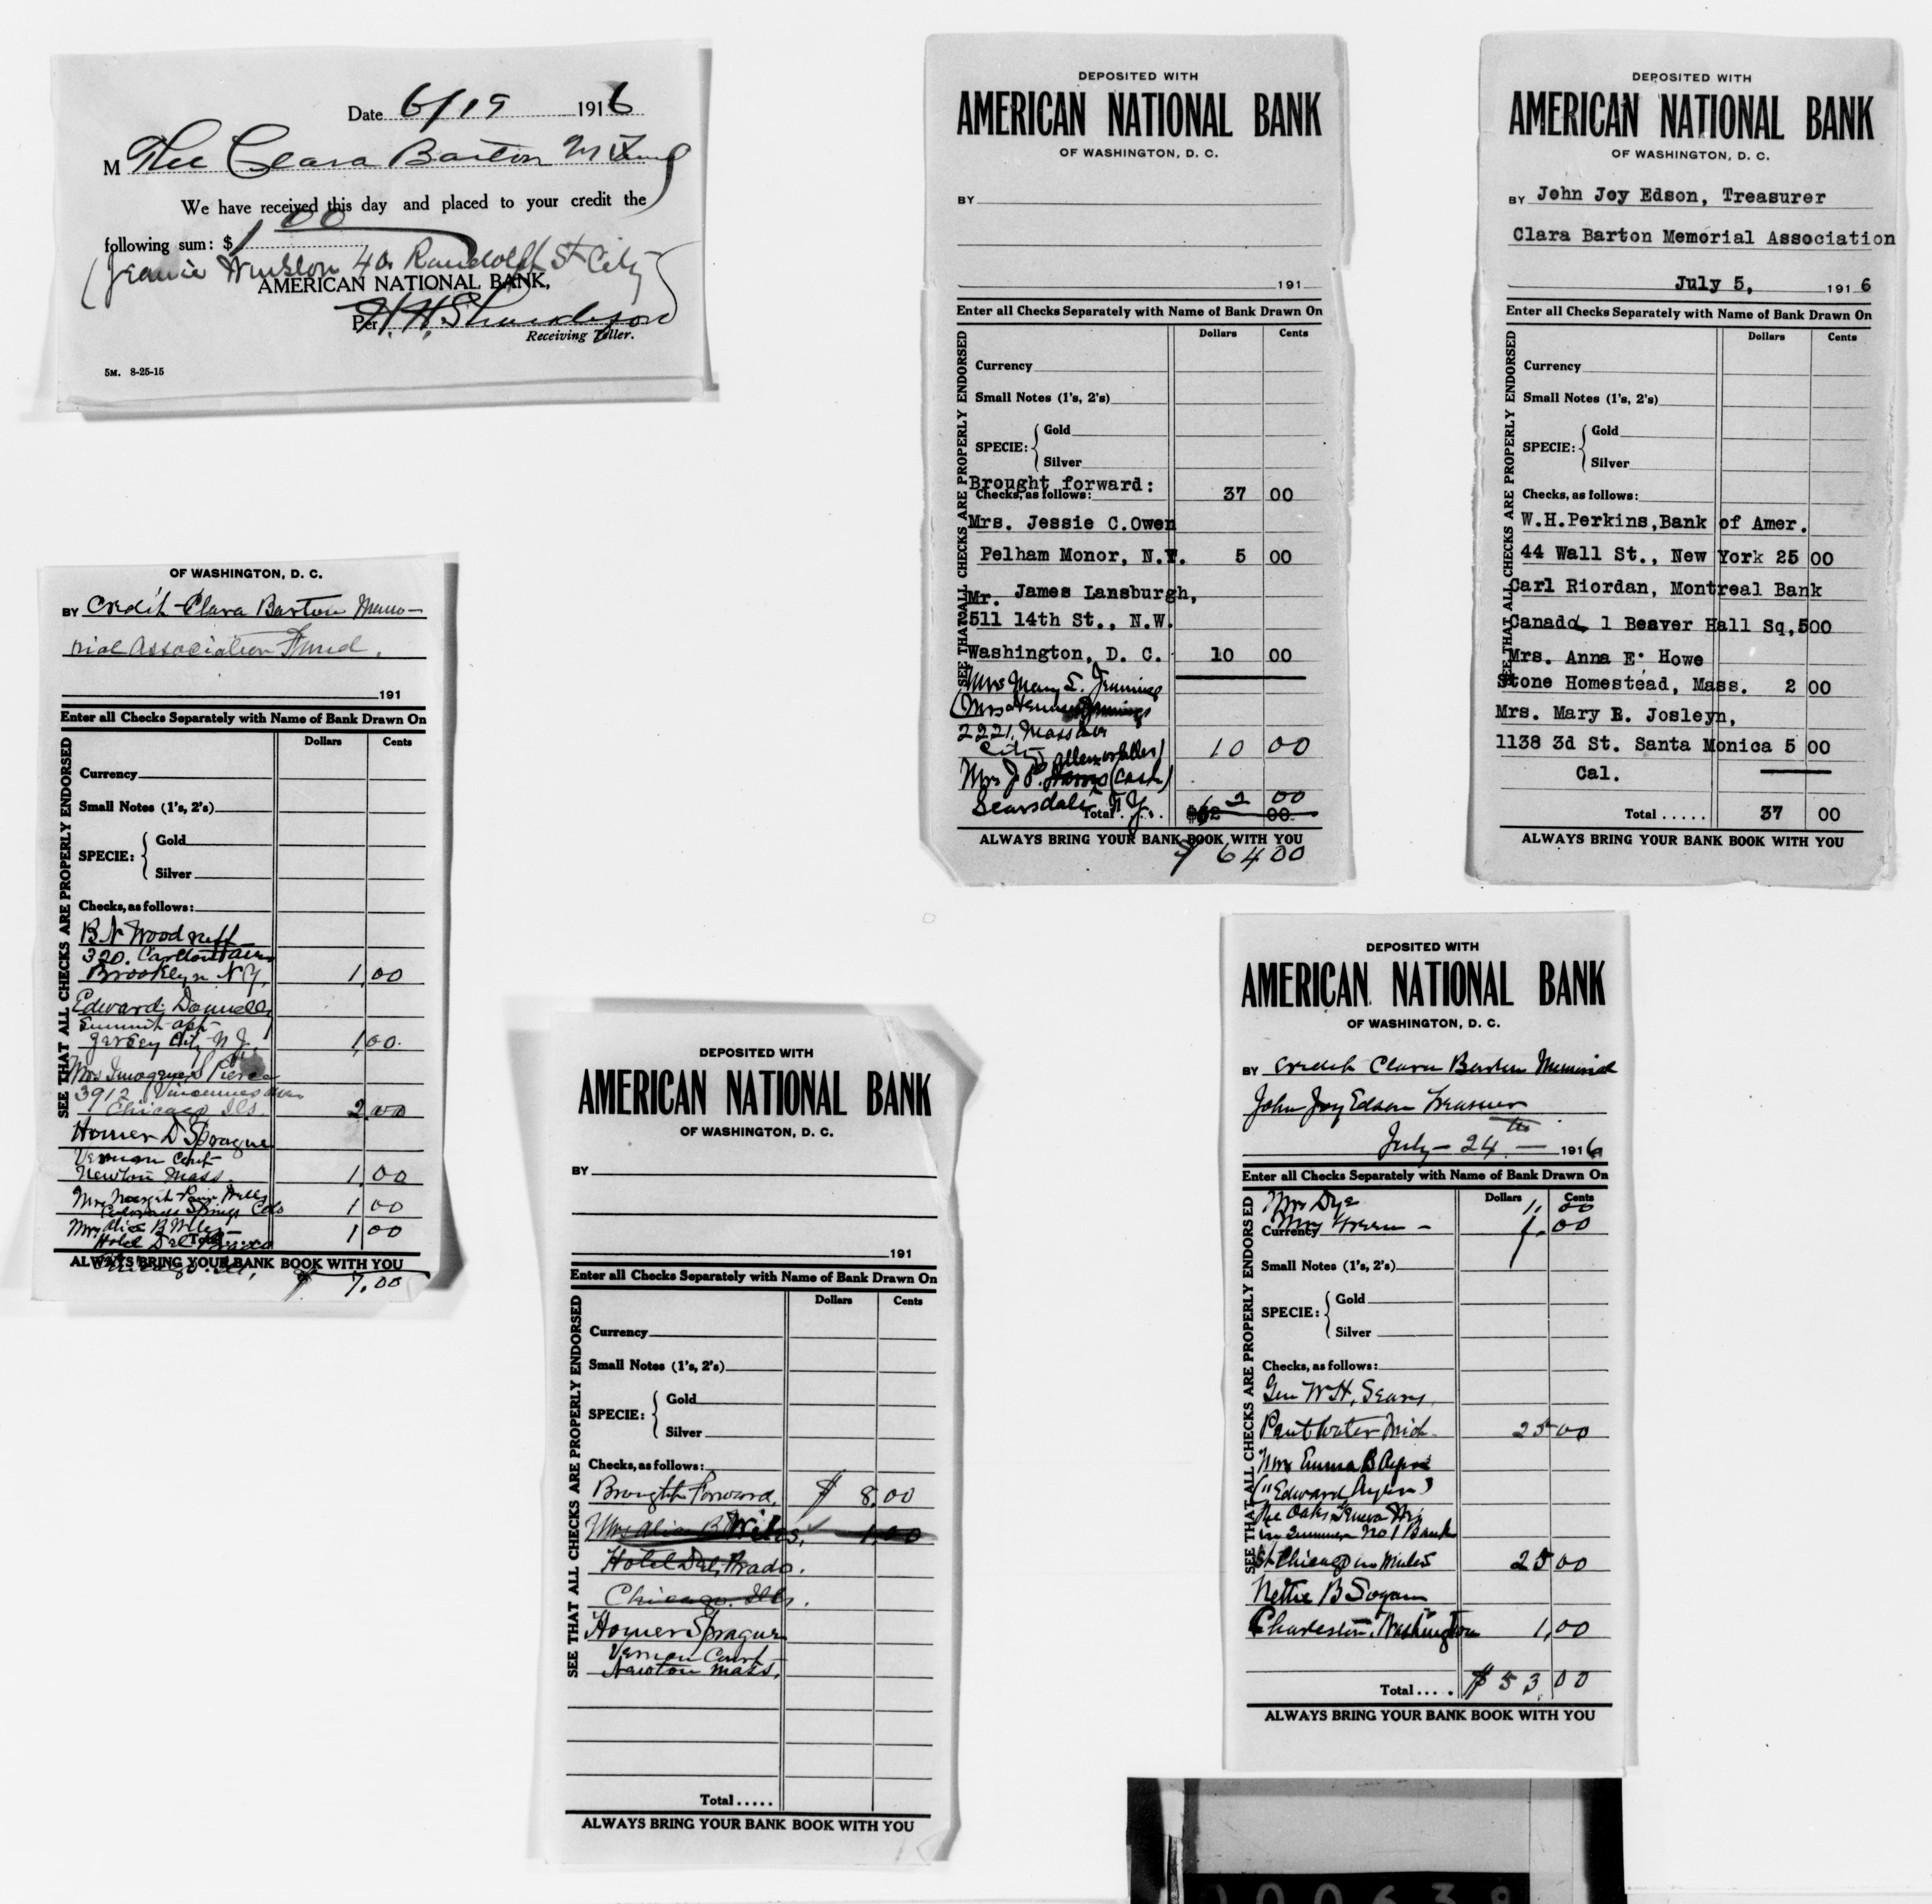 Date 6/19 1916
M The Clara Barton M Fund
We have received this day and placed to your credit the
following sum: $1 00
(Jeanie Winslow 40 Randolph St City)
AMERICAN NATIONAL BANK,
Per H.H.
Receiving Teller.
5M. 8-25-15
DEPOSITED WITH
AMERICAN NATIONAL BANK
OF WASHINGTON, D. C.
BY
191
Enter all Checks Separately with Name of Bank Drawn On
SEE THAT ALL CHECKS ARE PROPERLY ENDORSED
Dollars Cents
Currency
Small Notes (1's, 2's)
Gold
SPECIE:
Silver
Brought forward:
Checks, as follows: 37 00
Mrs. Jessie C.Owen
Pelham Monor, N.Y. 5 00
Mr. James Lansburgh,
511 14th St., N.W.
Washington, D. C. 10 00
Mrs Mary E. Jennings
(Mrs Hennen Jennings
2221, Mass Ave
City 10 00
Mrs J. P. (Cash)
Scarsdale N.Y. 2 00
Total $62 00
ALWAYS BRING YOUR BANK BOOK WITH YOU
$ 64 00
DEPOSITED WITH
AMERICAN NATIONAL BANK
OF WASHINGTON, D. C.
BY John Joy Edson, Treasurer
Clara Barton Memorial Association
July 5, 191 6
Enter all Checks Separately with Name of Bank Drawn On
SEE THAT ALL CHECKS ARE PROPERLY ENDORSED
Dollars Cents
Currency
Small Notes (1's, 2's)
Gold
SPECIE:
Silver
Checks, as follows:
W.H.Perkins,Bank of Amer.
44 Wall St., New York 25 00
Carl Riordan, Montreal Bank
Canada 1 Beaver Hall Sq,500
Mrs. Anna E. Howe
Stone Homestead, Mass. 2 00
Mrs. Mary R. Josleyn,
1138 3d St. Santa Monica 5 00
Cal.
Total ..... 37 00
ALWAYS BRING YOUR BANK BOOK WITH YOU
OF WASHINGTON, D. C.
BY Credit Clara Barton Memo-
rial Association Fund.
191
Enter all Checks Separately with Name of Bank Drawn On
SEE THAT ALL CHECKS ARE PROPERLY ENDORSED
Dollars Cents
Currency
Small Notes (1's, 2's)
Gold
SPECIE:
Silver
Checks, as follows:
B N Woodruff
320. Carlton Ave
Brooklyn N.Y. 1,00
Edward Donnelly
Summit apt
Jersey City N.J. 1,00.
Mrs Imogene S Pierce
3912 Vincennes Ave
Chicago Ills. 2,00
Homer D Sprague
Vernon Court
Newton Mass. 1,00
Mrs Wells
Colorado Springs Colo 1 00
Mrs Alice B Wiles
Hotel Del Prado 1 00
Total
ALWAYS BRING YOUR BANK BOOK WITH YOU
Chicago. Ill, $ 7,00
DEPOSITED WITH
AMERICAN NATIONAL BANK
OF WASHINGTON, D. C.
BY
191
Enter all Checks Separately with Name of Bank Drawn On
SEE THAT ALL CHECKS ARE PROPERLY ENDORSED
Dollars Cents
Currency
Small Notes (1's, 2's)
Gold
SPECIE:
Silver
Checks, as follows:
Brought Forward, $ 8,00
Mrs Alice B Wiles, 1,00
Hotel Del Prado.
Chicago. Ills.
Homer Sprague
Vernon Court
Newton Mass.
Total .....
ALWAYS BRING YOUR BANK BOOK WITH YOU
DEPOSITED WITH
AMERICAN NATIONAL BANK
OF WASHINGTON, D. C.
BY Credit Clara Barton Memorial
John Joy Edson Treasurer
July - 24th - 1916
Enter all Checks Separately with Name of Bank Drawn On
SEE THAT ALL CHECKS ARE PROPERLY ENDORSED
Dollars Cents
Mrs Dye 1. 00
Mrs Green - 1.00
Currency
Small Notes (1's, 2's)
Gold
SPECIE:
Silver
Checks, as follows:
Gen W.H. Sears,
Pentwater Mich. 25 00
Mrs Emma B Ayers
("Edward Ayers")
The Oaks Geneva
in Summer No 1 Bank
St Chicago in Winter 25 00
Nettie B
Charleston, Washington 1,00
Total .... $53,00
ALWAYS BRING YOUR BANK BOOK WITH YOU
000638